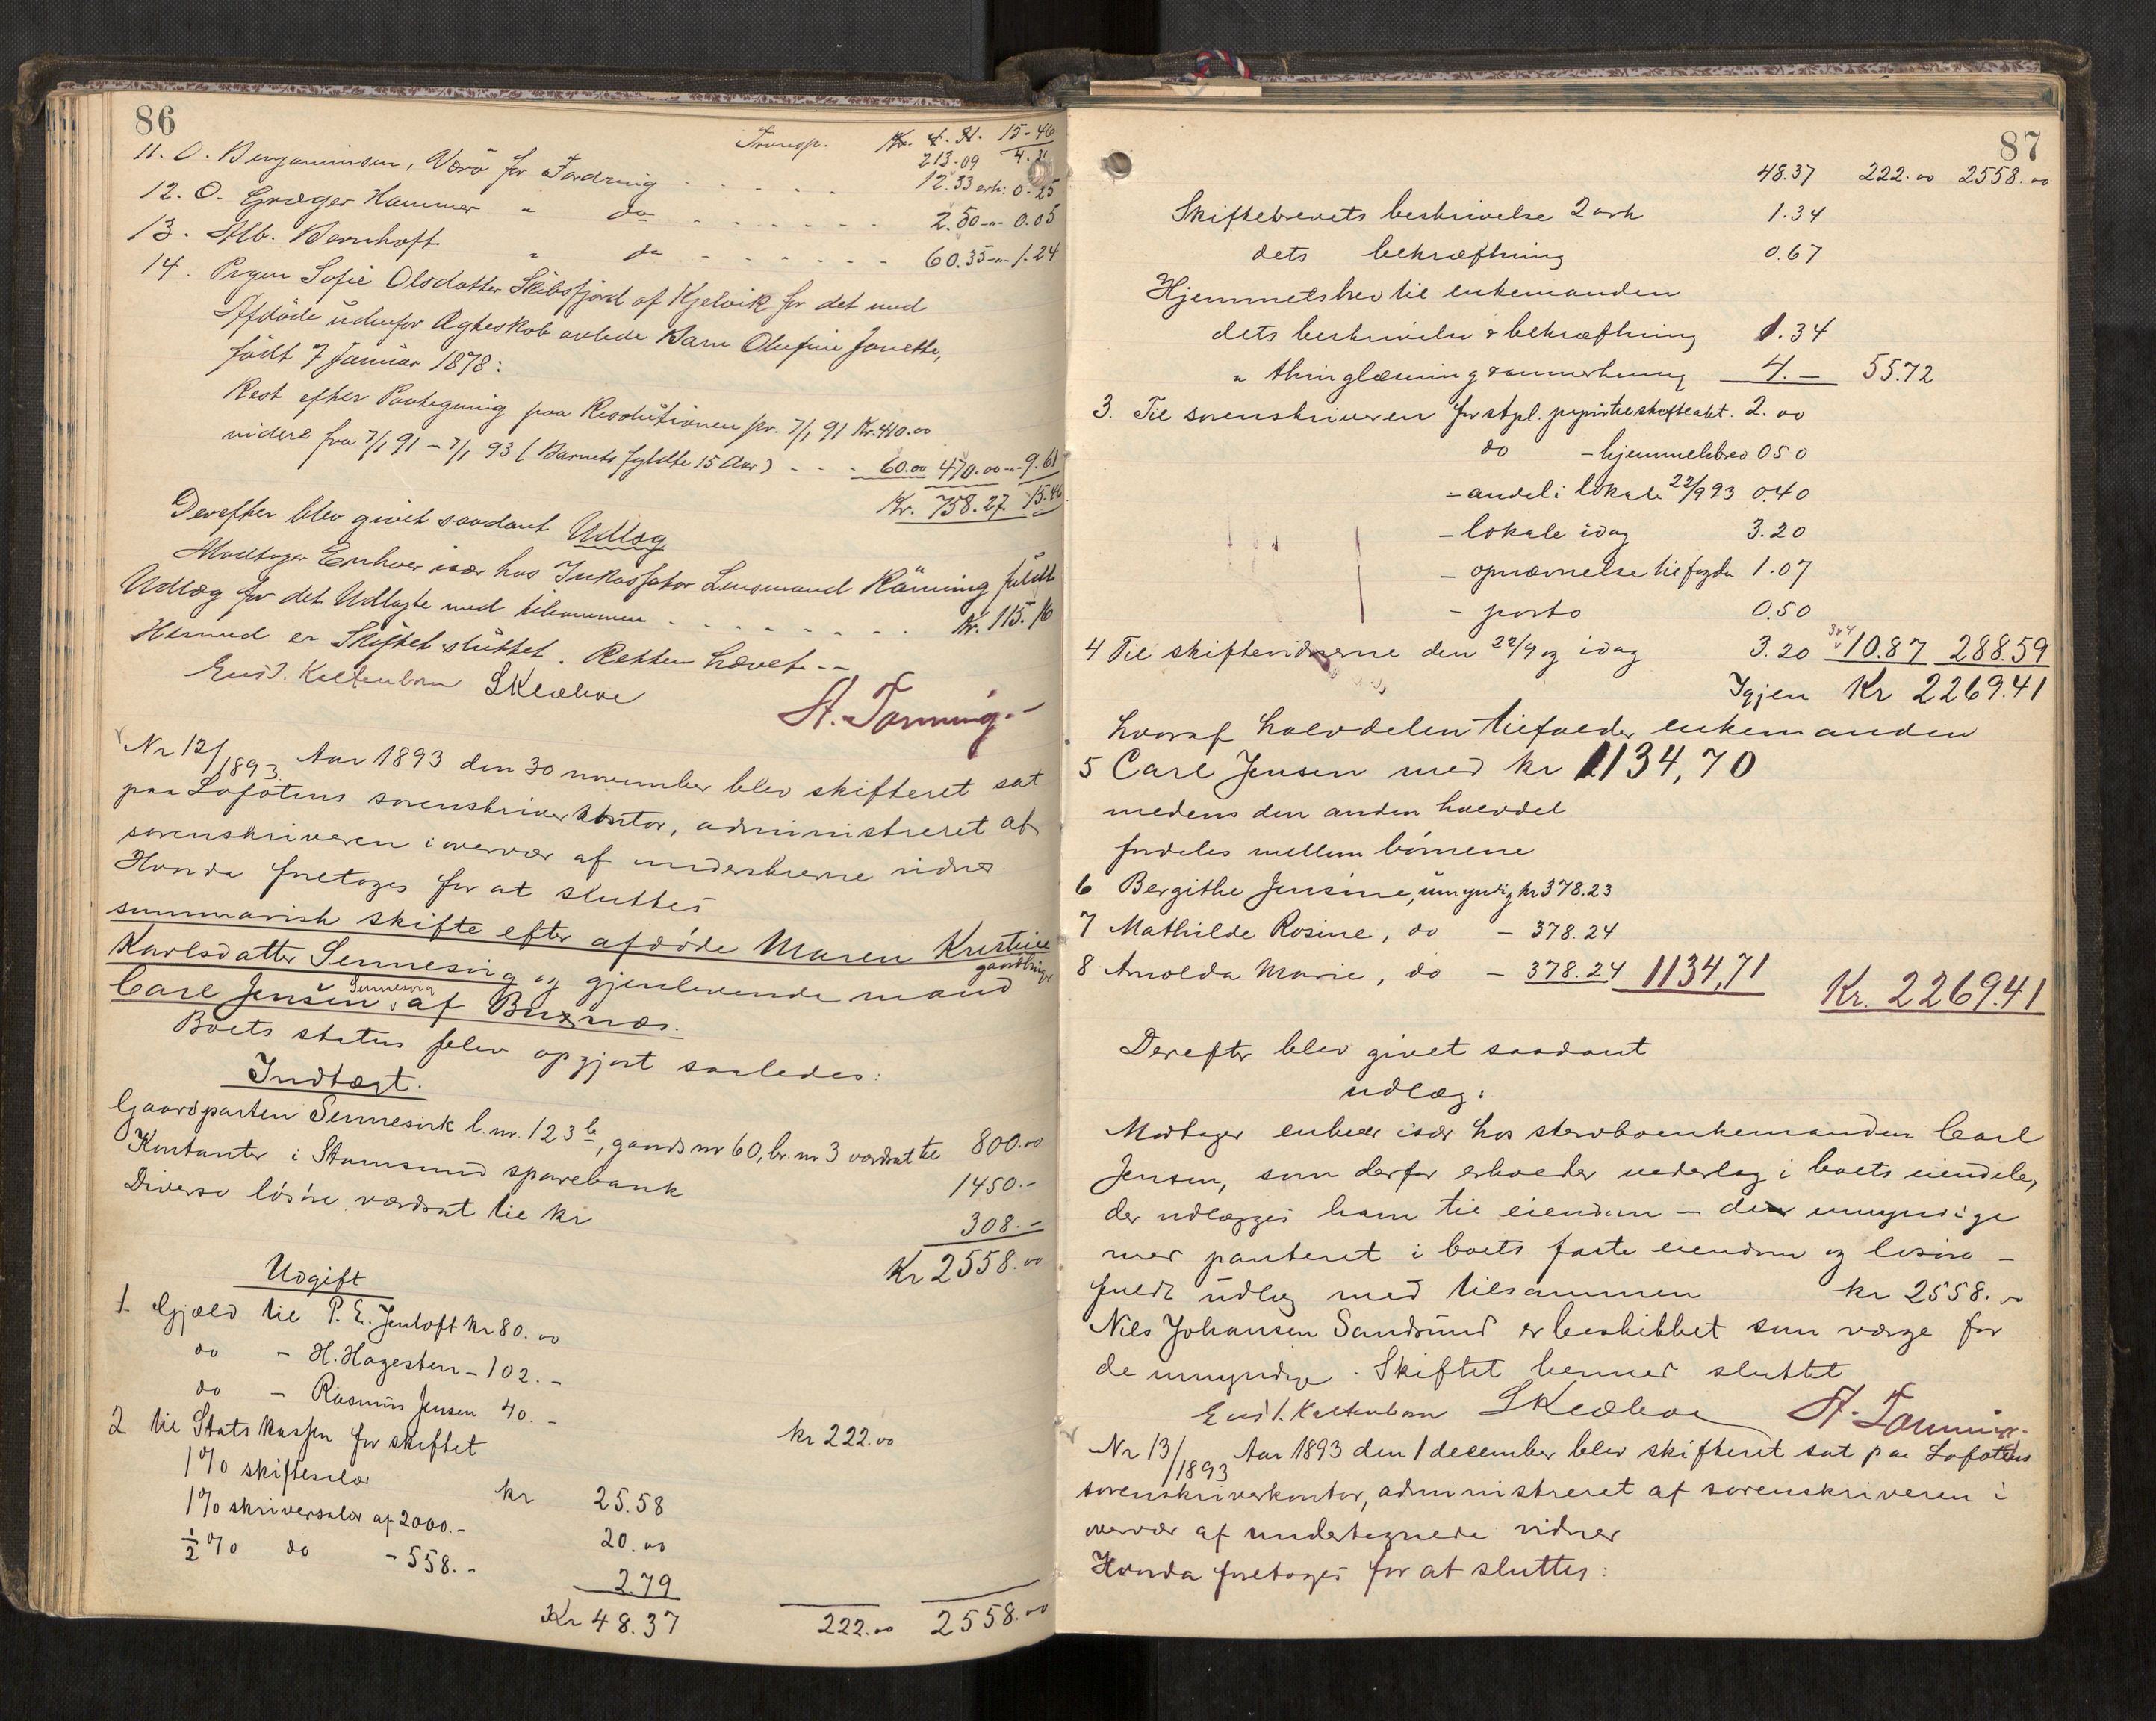 86
Transp. Kr. 4.31. 15-46
213-09 4.31
11. O. Benjaminsen, Værö for Fordring - - - - - 12.33 erh: 0.25
12. O. Græger Hammer " do - - - - - - 2.50 -"- 0.05
13. Alb. Bernhoft " do - - - - - - 60.35 -"- 1.24
14. Pigen Sofie Olsdatter Skibsfjord af Kjelvik for det med
Afdöde udenfor Ægteskab avlede Barn Olufine Janette,
födt 7 Januar 1878:
Rest efter Paategning paa Resolutionen pr. 7/1 91 Kr. 410.00
videre fra 7/1 91 - 7/1 93 (Barnets fyldte 15 Aar) - - - 60.00 470.00 -"- 9.61
Kr. 758.27. 15.46
Derefter blev givet saadant Udlæg
Modtager Enhver især hos Inkassator Lensmand Rånning fuldt
Udlæg for det Udlagte med tilsammen - - - - - - - - Kr. 115.16
Hermed er Skiftet sluttet. Retten hævet. --
Eus J. Kaltenborn SKlæboe
A. Tonning.-
Nr 12/1893 Aar 1893 den 30 november blev skifteret sat
paa Lofotens sorenskriverkontor, administreret af
sorenskriveren i overvær af underskrevne vidner.
Hvorda foretoges for at sluttes
summarisk skifte efter afdøde Maren Kristine
Karlsdatter Sennesvig og gjenlevende mand gaardbruger
Carl Jensen Sennesvig af Buxnæs.
Boets status blev opgjort saaledes:
Indtægt.
Gaardparten Sennesvik l.nr. 123 b, gaards nr 60, br. nr 3 værdsat til 800.00
Kontanter i Stamsund sparebank 1450.-
Diverse løsøre værdsat til kr 308.-
Kr 2558.00
Udgift
1. Gjæld til P. E. Jentoft kr 80.00
do - H. Hagesten - 102.-
do - Rasmus Jensen 40.-
kr 222.00
2 til Statskassen for skiftet
1% skiftesalær kr 25.58
1% skriversalær af 2000.- 20.00
½% do - 558.- 2.79
Kr 48.37 222.00 2558.00
87
48.37 222.00 2558.00
Skiftebrevets beskrivelse 2 ark 1.34
dets bekræftning 0.67
Hjemmelsbrev til enkemanden
dets beskrivelse & bekræftning 1.34
" thinglæsning & anmerkning 4.- 55.72
3. Til sorenskriveren for stpl. papir til skifteakt. 2.00
do - hjemmelsbrev 0.50
- andel i lokale 22/9 93 0.40
- lokale idag 3.20
- opnævnelse til fogden 1.07
- porto 0.50
4 Til skiftevidnerne den 22/9 og idag 3.20 10.87 288.59
Igjen Kr 2269.41
hvoraf halvdelen tilfalder enkemanden
5 Carl Jensen med kr 1134,70
medens den anden halvdel
fordeles mellem børnene
6 Bergithe Jensine, umyndig kr 378.23
7 Mathilde Rosine, do - 378.24
8 Arnolda Marie, do - 378.24 1134,71
Kr. 2269.41
Derefter blev givet saadant
udlæg:
Modtager enhver især hos stervboenkemanden Carl
Jensen, som derfor erholder vederlag i boets eiendele,
der udlægges ham til eiendom - de umyndige
mod panteret i boets faste eiendom og løsøre -
fuldt udlæg med tilsammen kr 2558.00
Nils Johansen Sandsund er beskikket som værge for
de umyndige. Skiftet hermed sluttet
Eus J. Kaltenborn SKlæboe A. Tonning.
Nr 13/1893 Aar 1893 den 1 december blev skifteret sat paa Lofotens
sorenskriverkontor, administreret af sorenskriveren i
overvær af undertegnede vidner
Hvorda foretoges for at sluttes: